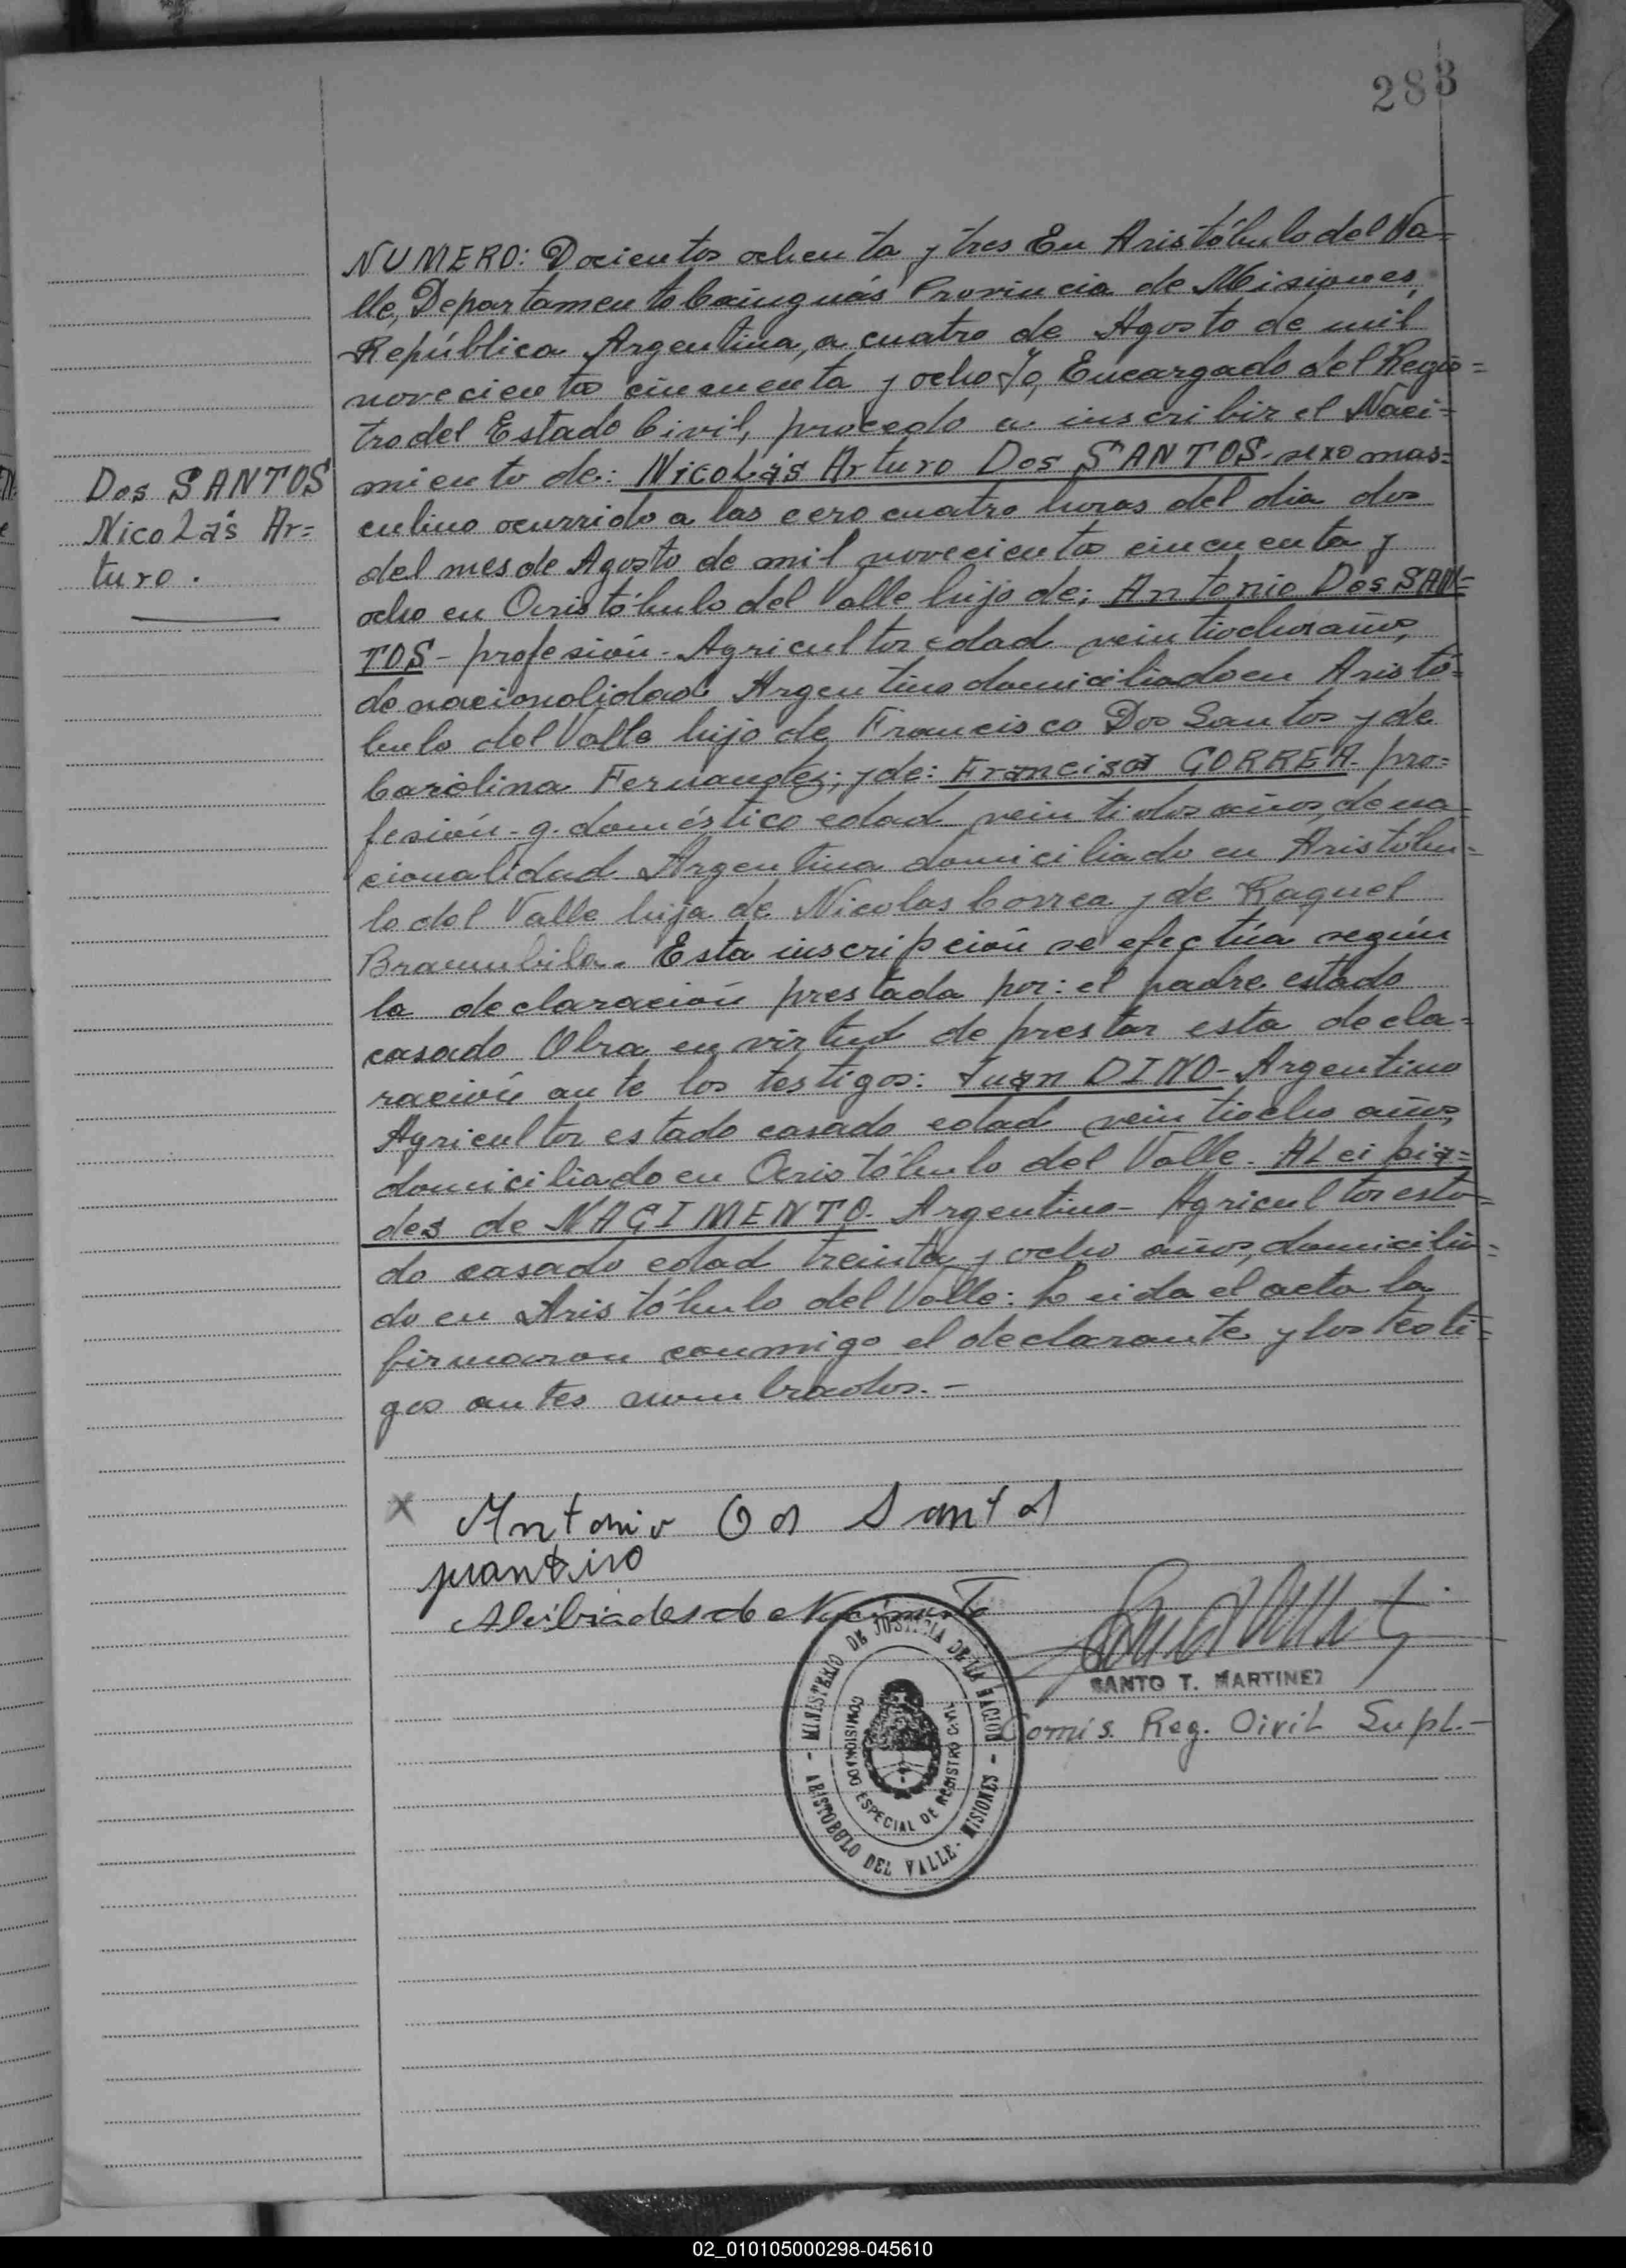 283
NUMERO: Docientos ochenta y tres En Aristóbulo del Va=
lle, Departamento Cainguás Provincia de Misiones,
República Argentina, a cuatro de Agosto de mil
novecientos cincuenta y ocho Yo, Encargado del Regis=
tro del Estado Civil, procedo a inscribir el Naci=
miento de: Nicolás Arturo Dos SANTOS- sexo mas=
culino ocurrido a las cero cuatro horas del dia dos
del mes de Agosto de mil novecientos cincuenta y
ocho en Aristóbulo del Valle hijo de; Antonio Dos SAN=
TOS- profesión- Agricultor edad veintiocho años,
de nacionalidad Argentino domiciliado en Aristó=
bulo del Valle hijo de Francisco Dos Santos y de
Carolina Fernandez; y de: Francisca CORREA- pro=
fesión- q. doméstico edad veintidos años, de na=
cionalidad Argentina domiciliado en Aristóbu=
lo del Valle hija de Nicolas Correa y de Raquel
Brambila. Esta inscripción se efectúa según
la declaración prestada por: el padre estado
casado Obra en virtud de prestar esta decla=
ración ante los testigos: Juan DINO- Argentino
Agricultor estado casado edad veintiocho años,
domiciliado en Aristóbulo del Valle. ALcibia=
des de NACIMENTO- Argentino- Agricultor esta=
do casado edad treinta y ocho años, domicilia=
do en Aristóbulo del Valle: Leida el acta la
firmaron conmigo el declarante y los testi=
gos antes nombrados.-
Dos SANTOS
Nicolás Ar=
turo.
X Antonio Dos Santos
juan Dino
Alcibiades de Nacimento
SANTO T. MARTINEZ
Comis. Reg. Civil Supl.-
MINISTERIO DE JUSTICIA DE LA NACION
COMISIONADO ESPECIAL DE REGISTRO CIVIL
- ARISTOBULO DEL VALLE - MISIONES -
02_010105000298-045610